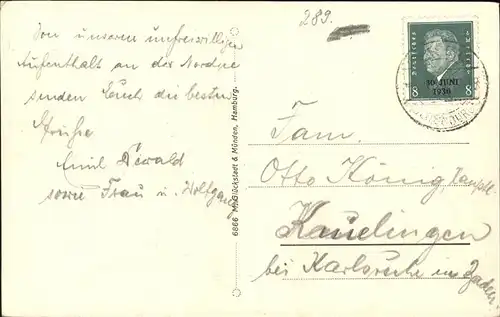 289.
Von unseren unfreiwilligen
Aufenthalt an der Nordsee
senden Euch die besten
Grüße
Emil Ewald
sowie Frau u. Wolfgang
6866 M. Glückstadt & Münden, Hamburg.
Deutsches Reich
30. JUNI
1930
8 8
Fam.
Otto König,
Knielingen
bei Karlsruhe in Baden.